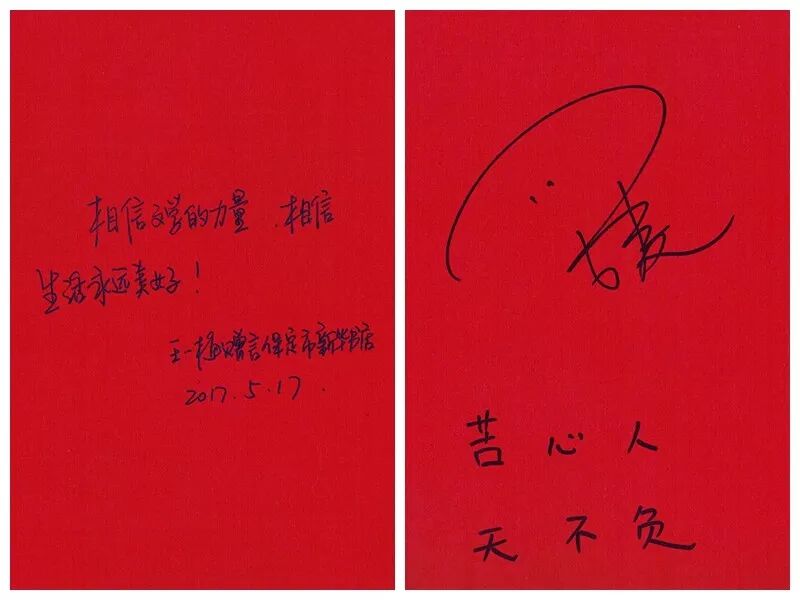 相信文学的力量，相信
生活永远美好！
王一梅赠言保定市新华书店
2017.5.17.
苦心人
天不负